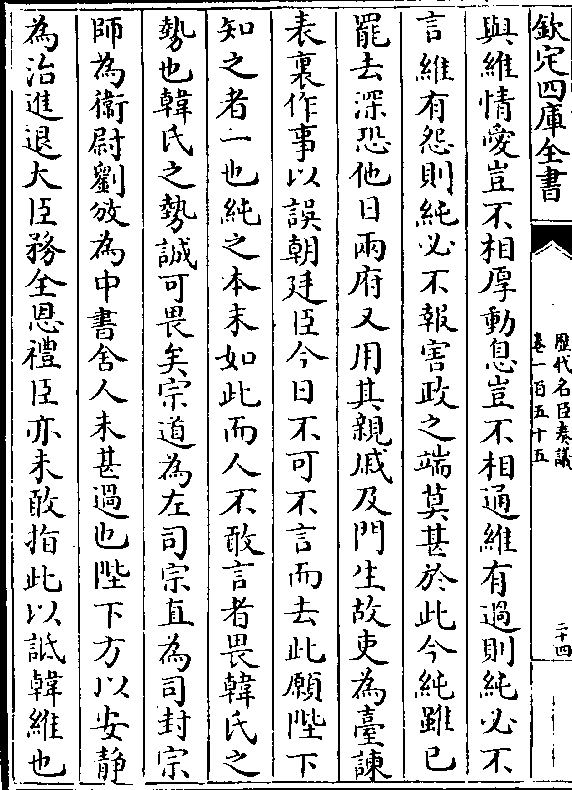 欽定四庫全書
歷代名臣奏議
卷一百五十五
二十四
與維情愛豈不相厚動息豈不相通維有過則純必不
言維有怨則純必不報害政之端莫甚於此今純雖已
罷去深恐他日兩府又用其親戚及門生故吏為臺諫
表裏作事以誤朝廷臣今日不可不言而去此願陛下
知之者一也純之本末如此而人不敢言者畏韓氏之
勢也韓氏之勢誠可畏矣宗道為左司宗直為司封宗
師為衛尉劉攽為中書舍人未甚過也陛下方以安靜
為治進退大臣務全恩禮臣亦未敢指此以詆韓維也